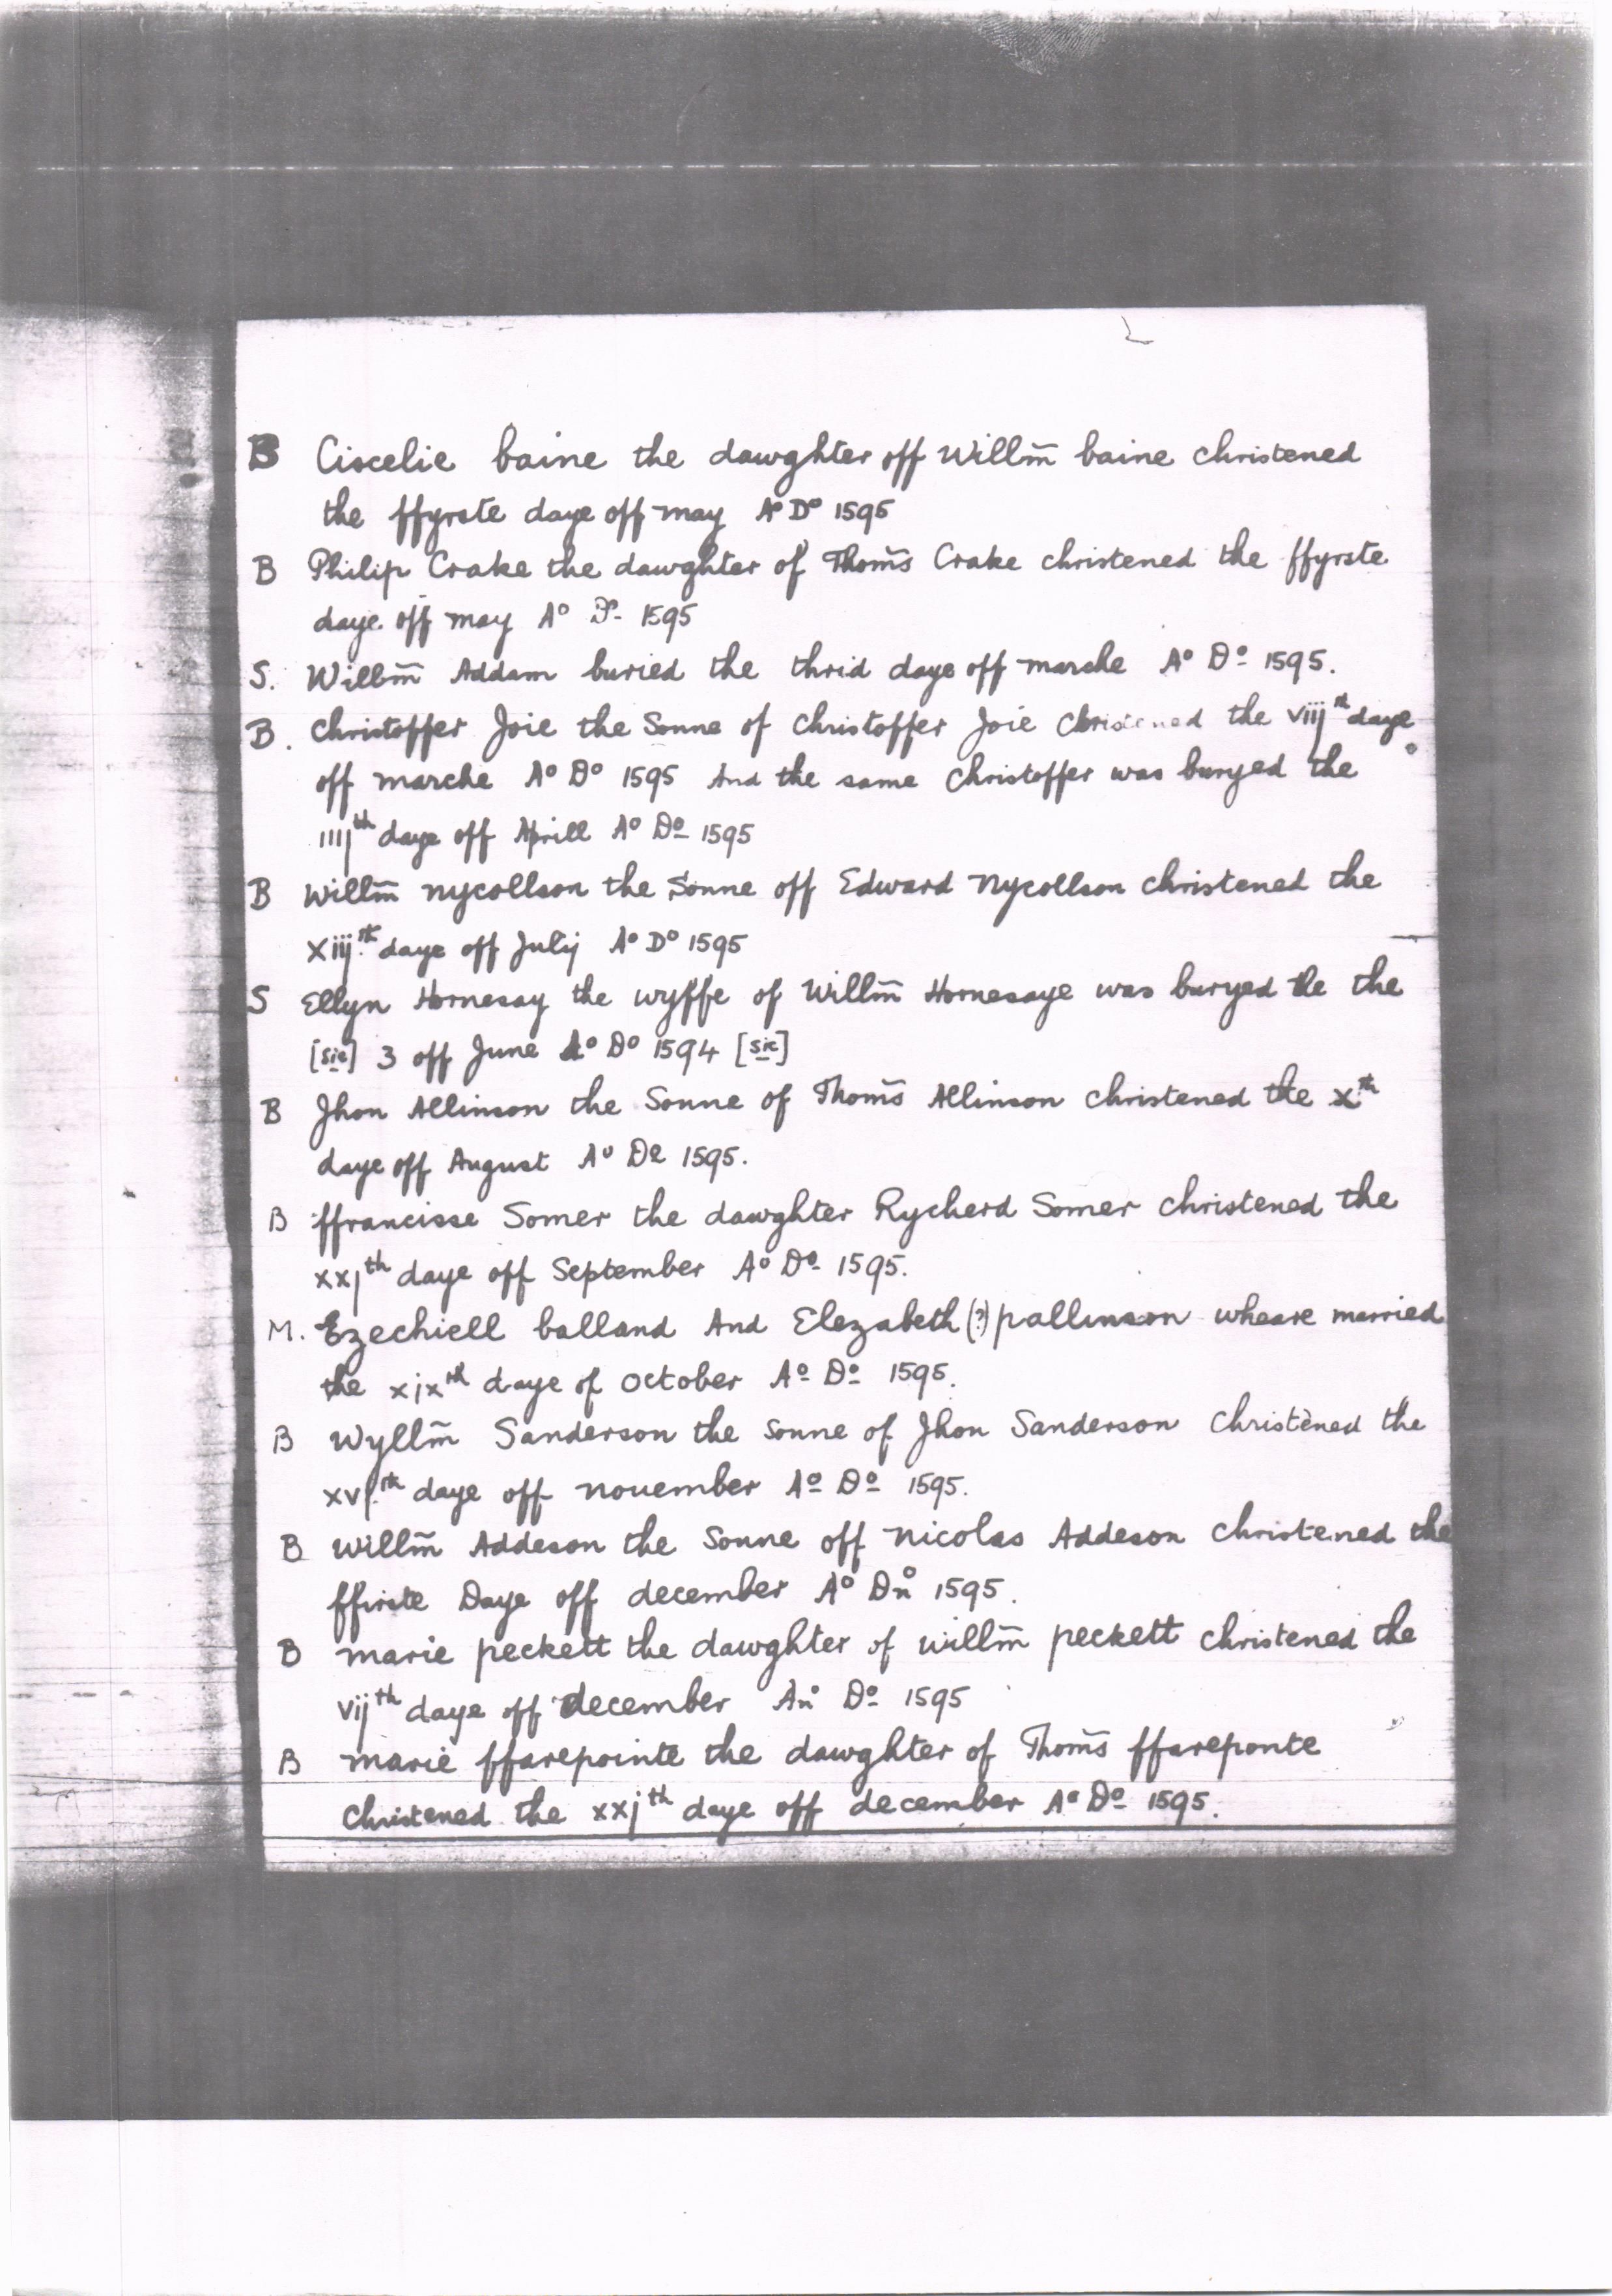 B Ciscelie baine the dawghter off Willm̃ baine christened
the ffyrste daye off may Aº Dº 1595
B Philip Crake the dawghter of Thom̃s Crake christened the ffyrste
daye off may Aº Dº 1595
S. Willm̃ Addam buried the thrid daye off marche Aº Dº 1595.
B. Christoffer Joie the Sonne of Christoffer Joie Christened the viijth daye
off marche Aº Dº 1595 And the same Christoffer was buryed the
iiijth daye off Aprill Aº Dº 1595
B Willm̃ nycollson the Sonne off Edward Nycollson christened the
xiij.th daye off Julij Aº Dº 1595
S Ellyn Hornesay the wyffe of Willm̃ Hornesaye was buryed the the
[sic] 3 off June Aº Dº 1594 [sic]
B Jhon Allinson the Sonne of Thom̃s Allinson christened the xth
daye off August Aº Dº 1595.
B ffrancisse Somer the dawghter Rycherd Somer christened the
xxjth daye off September Aº Dº 1595.
M. Ezechiell balland And Elezabeth (?) pallinson wheare married
the xjxth daye of October Aº Dº 1595.
B Wyllm̃ Sanderson the Sonne of Jhon Sanderson Christened the
xvj.th daye off november Aº Dº 1595.
B Willm̃ Addeson the Sonne off Nicolas Addeson Christened the
ffirste Daye off december Aº Dnº 1595.
B marie peckett the dawghter of willm̃ peckett christened the
vijth daye off december Anº Dº 1595
B marie ffarepointe the dawghter of Thom̃s ffareponte
Christened the xxjth daye off december Aº Dº 1595.